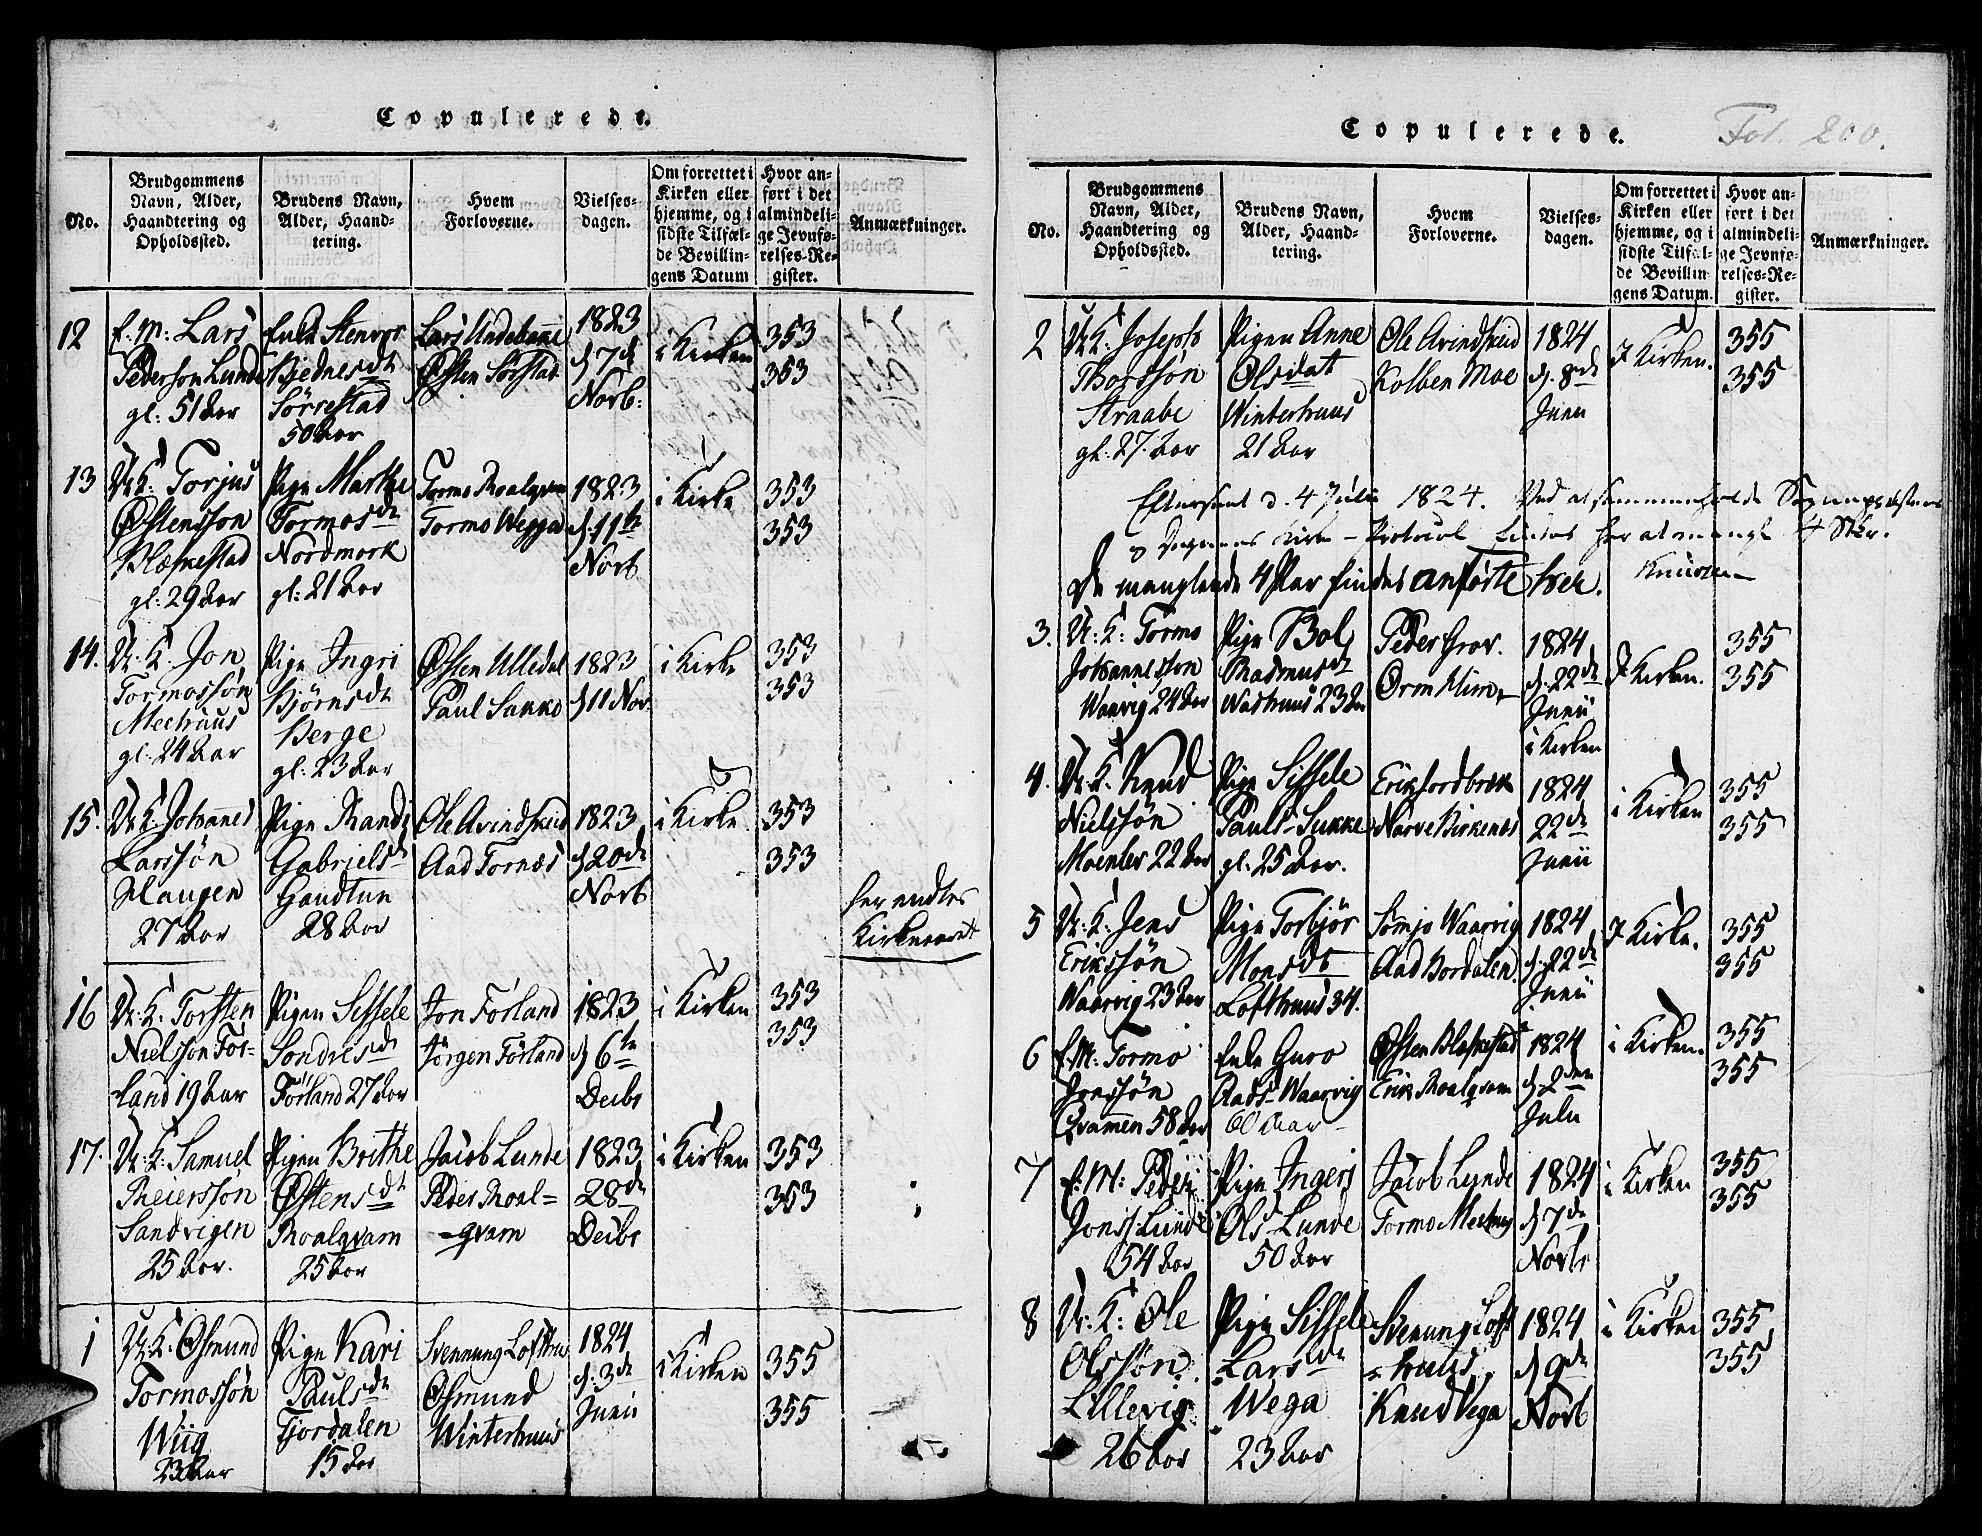 Copulerede.
No.
Brudgommens Navn, Alder, Haandtering og Opholdssted.
Brudens Navn, Alder, Haandtering.
Hvem Forloverne.
Vielsesdagen.
Om forrettet i Kirken eller hjemme, og i sidste Tilfælde Bevillingens Datum
Hvor anført i det almindelige Jevnførelses-Register.
Anmærkninger.
12 E. M. Lars Pederson Lunde gl. 51 Aar
Enke Stenvor Kjednesdt Sørrestad 50 Aar
Lars Undebanne Østen Sørstad
1823 d 7de Novb:
i Kirken
353
353
13 U. K. Torjus Østensson Blæskestad gl. 29 Aar
Pige Marthe Tormosdt Nordmork gl: 21 Aar
Tormo Roalqvam Tormo Wegga
1823 d. 11te Novb
i Kirke
353
353
14. U. K. Jon Tormossøn Meehuus gl. 24 Aar
Pige Ingri Bjørnsdt Berge gl. 23 Aar
Østen Ulledal Paul Sukke
1823 d 11 Nov.
i Kirke
353
353
15. U. K. Johannes Larssøn Haugen 27 Aar
Pige Randi Gabrielsdt Gandtun 28 Aar
Ole Avindskeid Aad Fornæs
1823 d 20de Novb
i Kirke
353
353
her endtes Kirkeaaret
16 U. K. Torsten Nielsson Førland 19 Aar
Pigen Sissele Sondresdt Førland 27 Aar
Jon Førland Jørgen Førland
1823 d 6te Decbr
i Kirken
353
353
17. U. K. Samuel Reiersson Sandvigen 25 Aar.
Pigen Brithe Østensdt Roalqvam 25 Aar
Jacob Lunde Peder Roalqvam
1823 28de Decbr
i Kirken
353
353
1 U. K. Osmund Tormossøn Wiig 23 Aar
Pige Kari Paulsdt Fjordalen 15 Aar
Svennung Lofthus Osmund Winterhuus
1824 d. 3de Junii
i Kirken
355
355
Copulerede.
Fol. 200.
No.
Brudgommens Navn, Alder, Haandtering og Opholdssted.
Brudens Navn, Alder, Haandtering.
Hvem Forloverne.
Vielsesdagen.
Om forrettet i Kirken eller hjemme, og i sidste Tilfælde Bevillingens Datum.
Hvor anført i det almindelige Jevnførelses-Register.
Anmærkninger.
2 U. K. Joseph Thorssøn Straabe gl. 27. Aar
Pigen Anne Olsdat Winterhuus 21 Aar
Ole Avindskeid Kolben Moe
1824 d. 8de Junii
I Kirken.
355
355
Efterseet d. 4 Julii 1824. Ved at sammenholde Sognepræstens
og Degnens Kirke-Protocol findes her at mangle 4 Stkr.
Knudsen
De manglende 4 Par findes anførte her.
3. U. K: Tormo Johannesson Waarvig 24 Aar
Pige Bol Rasmusdt Wasthuus 23 Aar
Peder Grov. Orm Klim
1824 d. 22de Junii i Kirken
I Kirken.
355
355
4. U. K. Knud Nielssøn Moenles 22 Aar
Pige Sissele Pauls-Sukke gl. 25 Aar.
Erik Jordbrek Narve Birkenes
1824 22de Junii
i Kirken
355
355
5 U. K. Jens Erikssøn Waarvig 23 Aar
Pige Torbjør Monsdt Lofthuus 34.
Sømjo Waarvig Aad Bordalen
1824 d. 22de Junii
I Kirke.
355
355
6 E. M. Tormo Jonssøn Qvamen 58 Aar
Enke Guro Aads-Waarvig 60 Aar
Østen Blæskestad Erik Roalqvam
1824 d. 2den Julii
i Kirken.
355
355
7 E. M. Peder Jons: Lunde 54 Aar
Pige Ingeri Ols Lunde 50 Aar
Jacob Lunde Tormo Meehuus
1824 d 7de Novbr
i Kirken
355
355
8 U. K. Ole Olssøn Lillevig 26 Aar
Pige Sissele Larsdt Wega 23 Aar
Svenung Lofthuus Knud Vega
1824 d 9de Novb
i Kirken
355
355